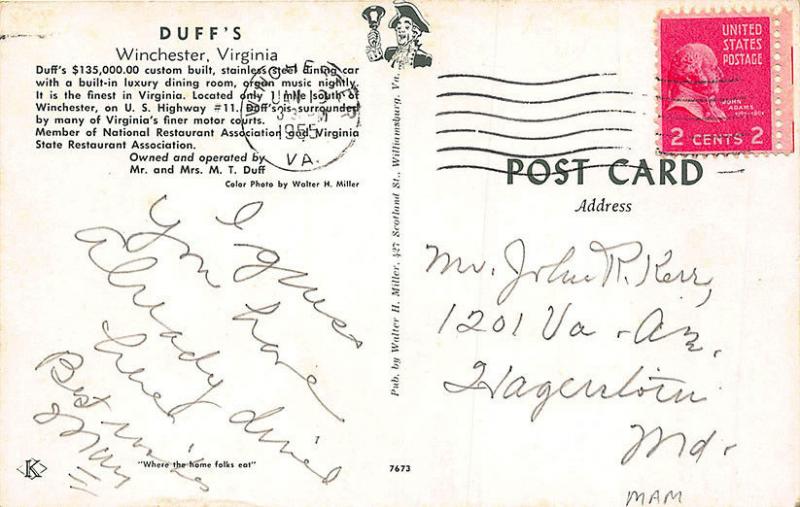 DUFF'S
Winchester, Virginia
Duff's $135,000.00 custom built, stainless steel dining car
with a built-in luxury dining room, organ music nightly.
It is the finest in Virginia. Located only 1 mile south of
Winchester, on U. S. Highway #11. Duff's is surrounded
by many of Virginia's finer motor courts.
Member of National Restaurant Association and Virginia
State Restaurant Association.
Owned and operated by
Mr. and Mrs. M. T. Duff
Color Photo by Walter H. Miller
1955
VA.
I guess
you have
already dined
here
Best wishes
"Where the home folks eat"
K
Pub. by Walter H. Miller, 427 Scotland St., Williamsburg, Va.
7673
UNITED
STATES
POSTAGE
JOHN
ADAMS
2 CENTS 2
POST CARD
Address
Mr. John R. Kerr,
1201 Va. Av.
Hagerstown
Md.
MAM